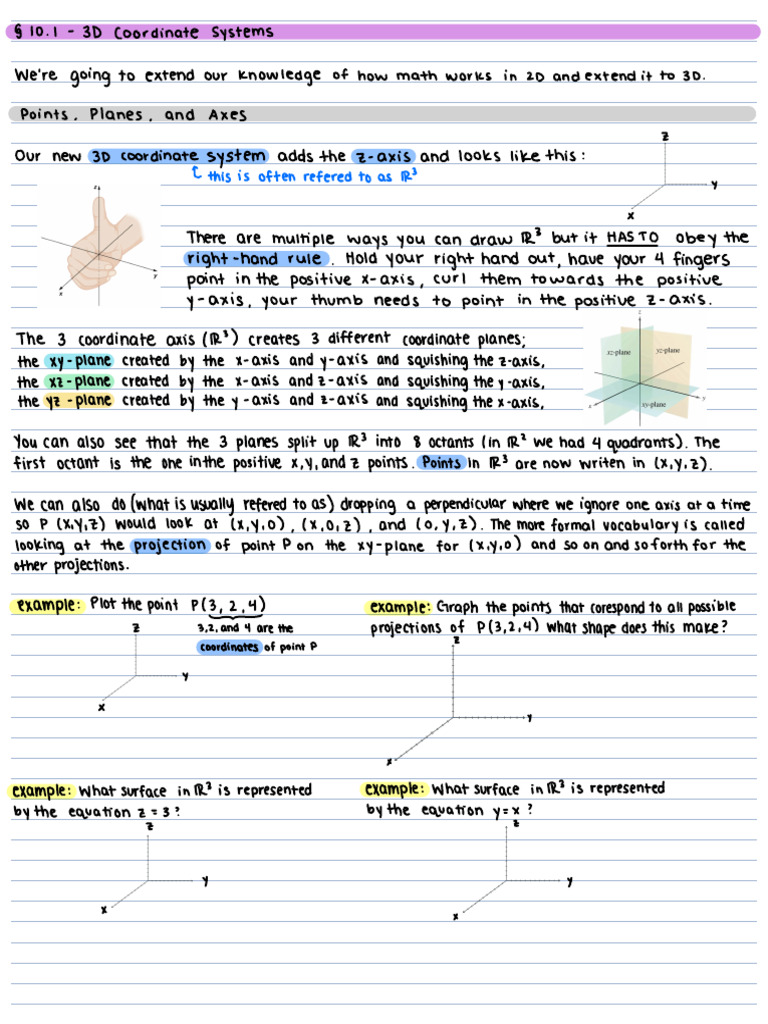 § 10.1 - 3D Coordinate Systems
We're going to extend our knowledge of how math works in 2D and extend it to 3D.
Points, Planes, and Axes
Our new 3D coordinate system adds the z-axis and looks like this:
this is often refered to as ℝ³
z
y
x
z
y
x
There are multiple ways you can draw ℝ³ but it HAS TO obey the
right-hand rule. Hold your right hand out, have your 4 fingers
point in the positive x-axis, curl them towards the positive
y-axis, your thumb needs to point in the positive z-axis.
The 3 coordinate axis (ℝ³) creates 3 different coordinate planes;
the xy-plane created by the x-axis and y-axis and squishing the z-axis,
the xz-plane created by the x-axis and z-axis and squishing the y-axis,
the yz-plane created by the y-axis and z-axis and squishing the x-axis,
z
xz-plane
yz-plane
xy-plane
x
y
You can also see that the 3 planes split up ℝ³ into 8 octants (in ℝ² we had 4 quadrants). The
first octant is the one in the positive x, y, and z points. Points in ℝ³ are now writen in (x,y,z).
We can also do (what is usually refered to as) dropping a perpendicular where we ignore one axis at a time
so P (x,y,z) would look at (x,y,0), (x,0,z), and (0,y,z). The more formal vocabulary is called
looking at the projection of point P on the xy-plane for (x,y,0) and so on and so forth for the
other projections.
example: Plot the point P(3,2,4)
3,2, and 4 are the
coordinates of point P
z
y
x
example: Graph the points that corespond to all possible
projections of P(3,2,4) What shape does this make?
z
y
x
example: What surface in ℝ³ is represented
by the equation z = 3?
z
y
x
example: What surface in ℝ³ is represented
by the equation y=x?
z
y
x